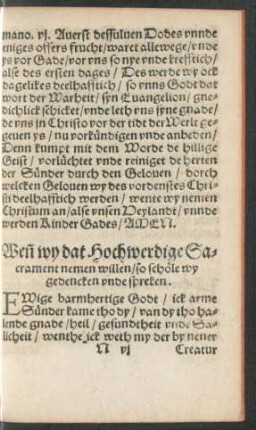 mano. vj. Averst dessuluen Dodes vnnde
einiges offers frucht/waret allewege/vnde
ys vor Gade/vor vns so nye vnde krefftich/
alse des ersten dages/Des werde wy ock
dagelikes deelhafftich/so vnns Godt dat
wort der Warheit/syn Euangelion/gne-
dichlick schicket/vnde leth vns syne gnade/
de vns jn Christo vor der tidt der Werlt ge-
geuen ys/nu vorkündigen vnde anbeden/
Denn kumpt mit dem Worde de hillige
Geist/vorlüchtet vnde reiniget de herten
der Sünder durch den Gelouen/dorch
welcken Gelouen wy des vordenstes Chri-
sti deelhafftich werden/wente wy nemen
Christum an/alse vnsen Heylandt/vnnde
werden Kinder Gades/AMEN.
Wen̄ wy dat Hochwerdige Sa-
crament nemen willen/so schöle wy
gedencken vnde spreken.
EWige barmhertige Godt/ick arme
Sünder kame tho dy/van dy tho ha-
lende gnade/heil/gesundtheit vnde Sa-
licheit/wenthe ick weth my der by nener
N vj Creatur